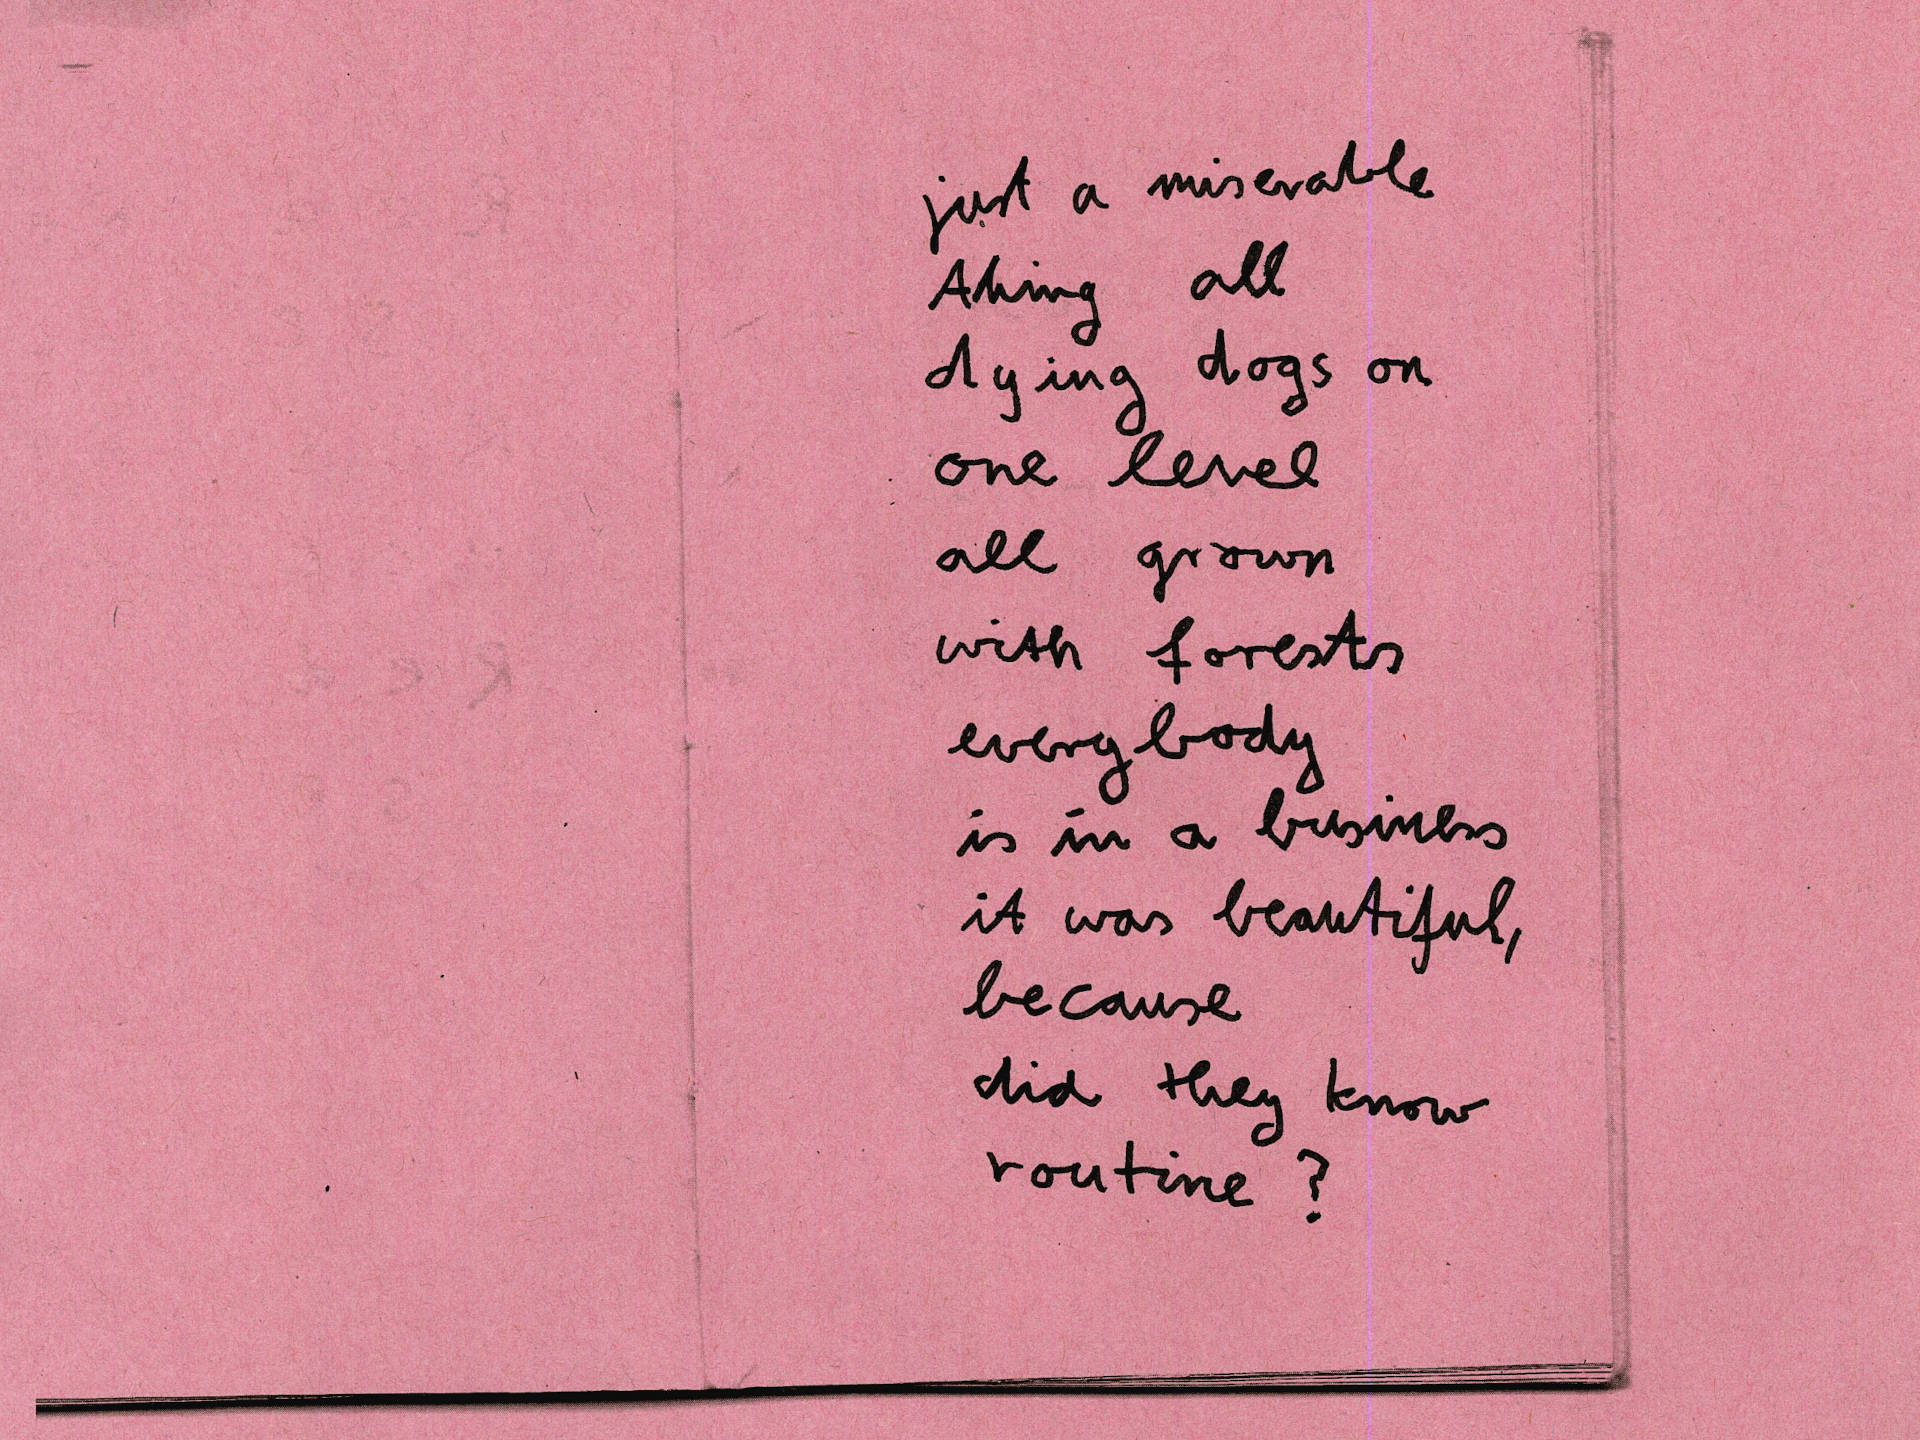 just a miserable
thing all
dying dogs on
one level
all grown
with forests
everybody
is in a business
it was beautiful,
because
did they know
routine?